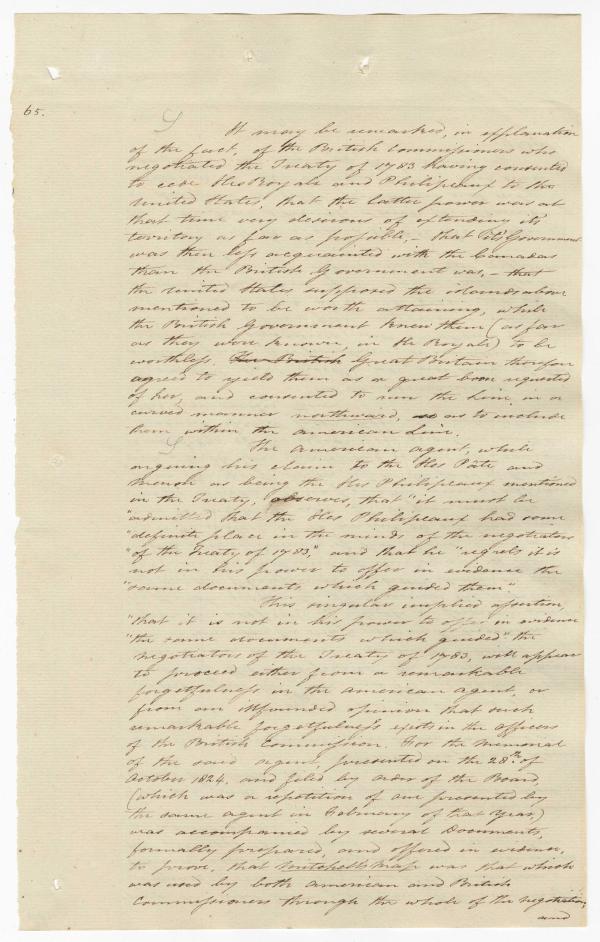 65.
It may be remarked, in explanation
of the fact, of the British Commissioners who
negotiated the Treaty of 1783 having consented
to cede Iles Royale and Philipeaux to the
United States, that the latter power was at
that time very desirous of extending its
territory as far as possible,- that its Government
was then less acquainted with the Canadas
than the British Government was,- that
the United States supposed the islands above
mentioned to be worth attaining, while
the British Government knew them (as far
as they were known, in Ile Royale) to be
worthless. The British Great Britain therefore
agreed to yield them as a great boon requested
of her, and consented to run the Line, in a
curved manner northward, so as to include
them within the american Line.
The American agent, while
arguing his claim to the Iles Pate and
Menon as being the Iles Philipeaux mentioned
in the Treaty, observes, that "it must be
"admitted that the Iles Philipeaux had some
"definite place in the minds of the negotiators
"of the Treaty of 1783," and that he "regrets it is
not in his power to offer in evidence the
"same documents which guided them".
This singular implied assertion,
"that it is not in his power to offer in evidence
"the same documents which guided" the
negotiators of the Treaty of 1783, will appear
to proceed either from a remarkable
forgetfulness in the american agent, or
from an unfounded opinion that such
remarkable forgetfulness exists in the officers
of the British Commission. For the Memorial
of the said agent, presented on the 28th. of
October 1824, and filed by order of the Board,
(which was a repetition of one presented by
the same agent in February of that Year,)
was accompanied by several Documents,
formally prepared, and offered in evidence,
to prove, that Mitchell's Map was that which
was used by both American and British
Commissioners through the whole of the negotiation,
and